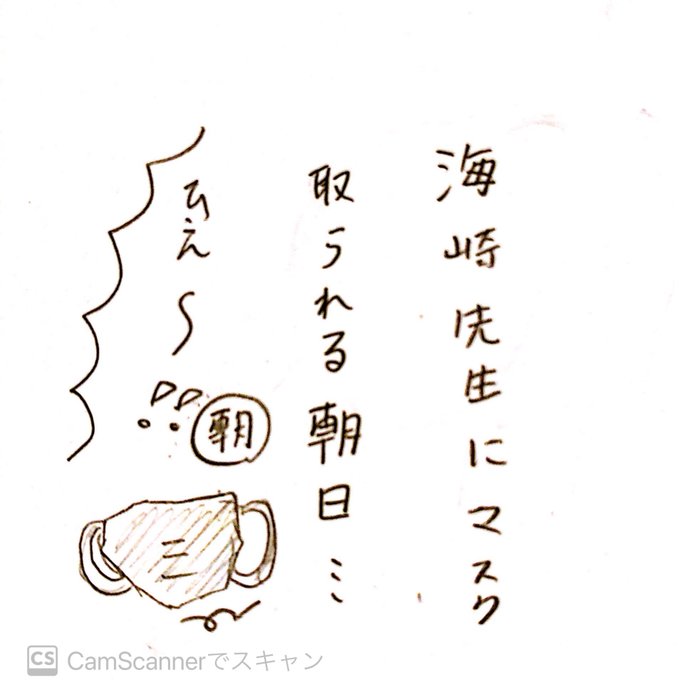 海崎先生にマスク
取られる朝日ミ
ひえ〜!!
朝
三
CS CamScannerでスキャン